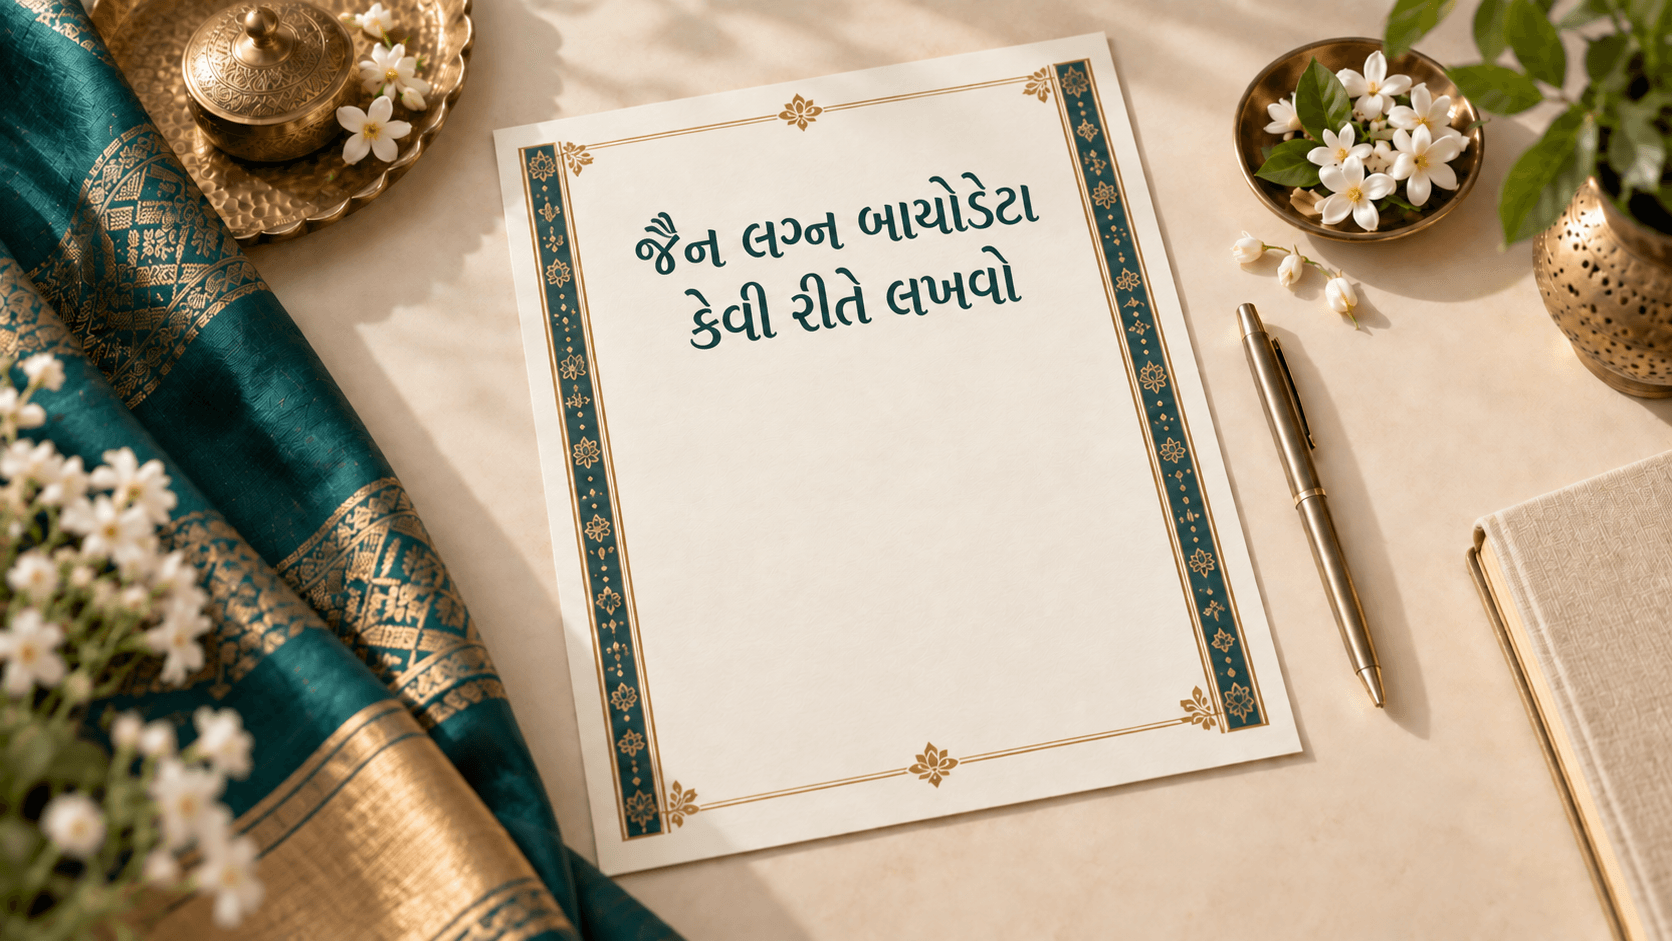 જૈન લગ્ન બાયોડેટા
કેવી રીતે લખવો